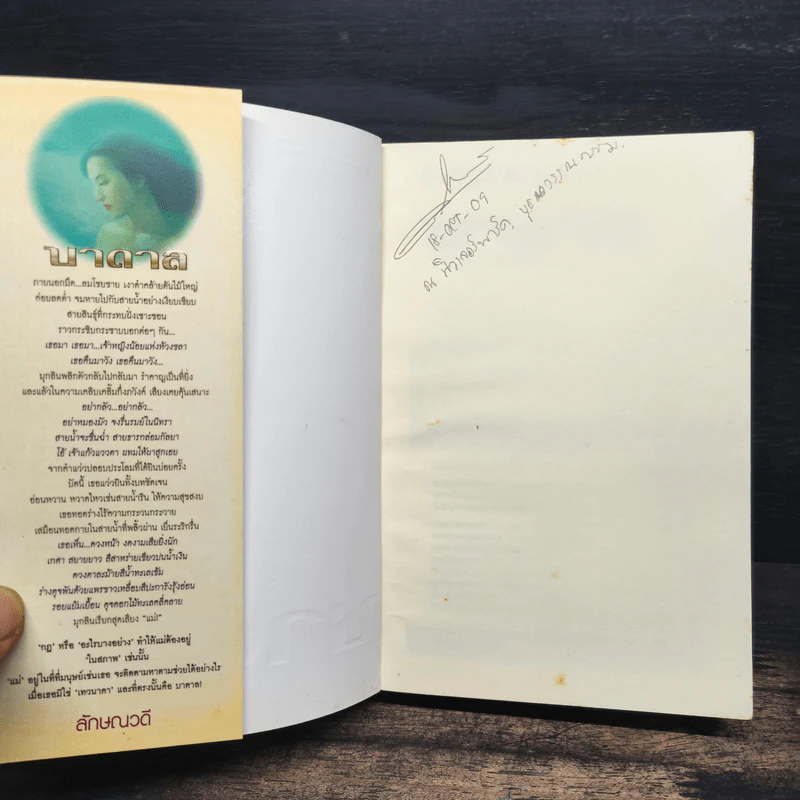 บาดาล
ภายนอกมืด...ลมโชยชาย เงาดำคล้ายต้นไม้ใหญ่
ค่อยลดต่ำ จมหายไปกับสายน้ำอย่างเงียบเชียบ
สายสินธุ์ที่กระทบฝั่งเซาะซอน
ราวกระซิบกระซาบบอกค่อยๆ กัน...
เธอมา เธอมา...เจ้าหญิงน้อยแห่งห้วงชลา
เธอคืนมาวัง เธอคืนมาวัง...
มุกสินพลิกตัวกลับไปกลับมา รำคาญเป็นที่ยิ่ง
และแล้วในความเคลิบเคลิ้มกึ่งภวังค์ เสียงเคยคุ้นเสนาะ
อย่ากลัว...อย่ากลัว...
อย่าหมองมัว จงรื่นรมย์ในนิทรา
สายน้ำจะชื่นฉ่ำ สายธารกล่อมกัลยา
โอ้ เจ้าแก้วแววตา ผทมให้ผาสุกเอย
จากคำแว่วปลอบประโลมที่ได้ยินบ่อยครั้ง
บัดนี้ เธอแว่วยินทั้งบทชัดเจน
อ่อนหวาน หวาดไหวเช่นสายน้ำริน ให้ความสุขสงบ
เธอทอดร่างไร้ความกระวนกระวาย
เสมือนทอดกายในสายน้ำที่พลิ้วผ่าน เย็นระริกรื่น
เธอเห็น...ดวงหน้า งดงามเสียยิ่งนัก
เกศา สยายยาว สีสาหร่ายเขียวปนน้ำเงิน
ดวงตาละม้ายสีน้ำทะเลเข้ม
ร่างดุจพันด้วยแพรขาวเหลื่อมสีปะการังรุ้งอ่อน
รอยแย้มเยื้อน ดุจดอกไม้ทะเลคลี่คลาย
มุกสินเรียกสุดเสียง "แม่!"
'กฎ' หรือ 'อะไรบางอย่าง' ทำให้แม่ต้องอยู่
'ในสภาพ' เช่นนั้น
'แม่' อยู่ในที่ที่มนุษย์เช่นเธอ จะติดตามหาตามช่วยได้อย่างไร
เมื่อเธอมิใช่ 'เทวนาคา' และที่ตรงนั้นคือ บาดาล!
ลักษณวดี
18-ตค-09
ณ